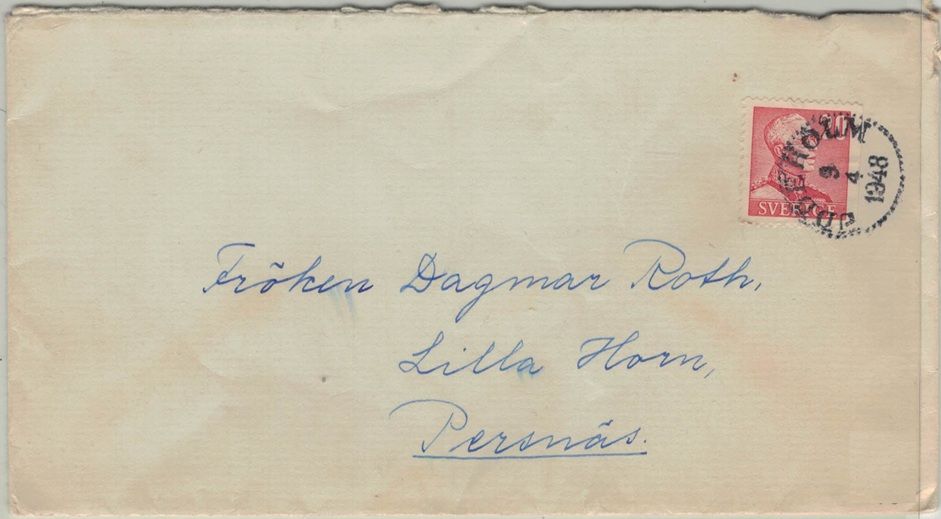 10
SVERIGE
HOLM
9
4
1948
Fröken Dagmar Roth,
Lilla Horn,
Persnäs.